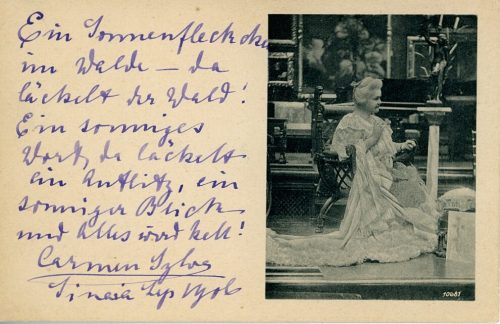 Ein Sonnenfleckchen
im Walde – da
läckelt der Wald!
Ein sonniges
Wort, da läckelt
ein Antlitz, ein
sonniger Blick
und Alles wird hell!
Carmen Sylva
Sinaia
10681